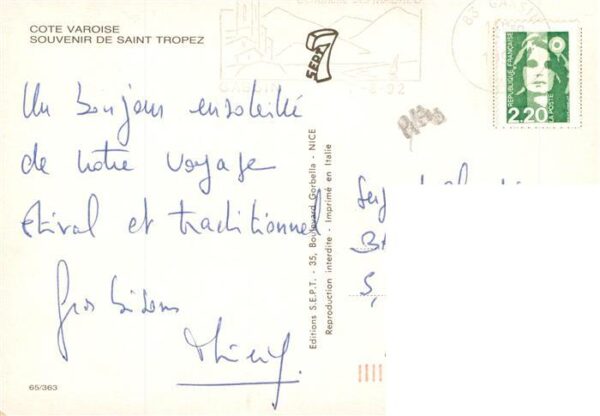 COTE VAROISE
SOUVENIR DE SAINT TROPEZ
Un bonjour ensoleillé
de notre voyage
estival et traditionnel
Gros bisous
65/363
Editions S.E.P.T. - 35, Boulevard Gorbella - NICE
Reproduction interdite - Imprimé en Italie
SEPT
REPUBLIQUE FRANÇAISE
2,20
LA POSTE